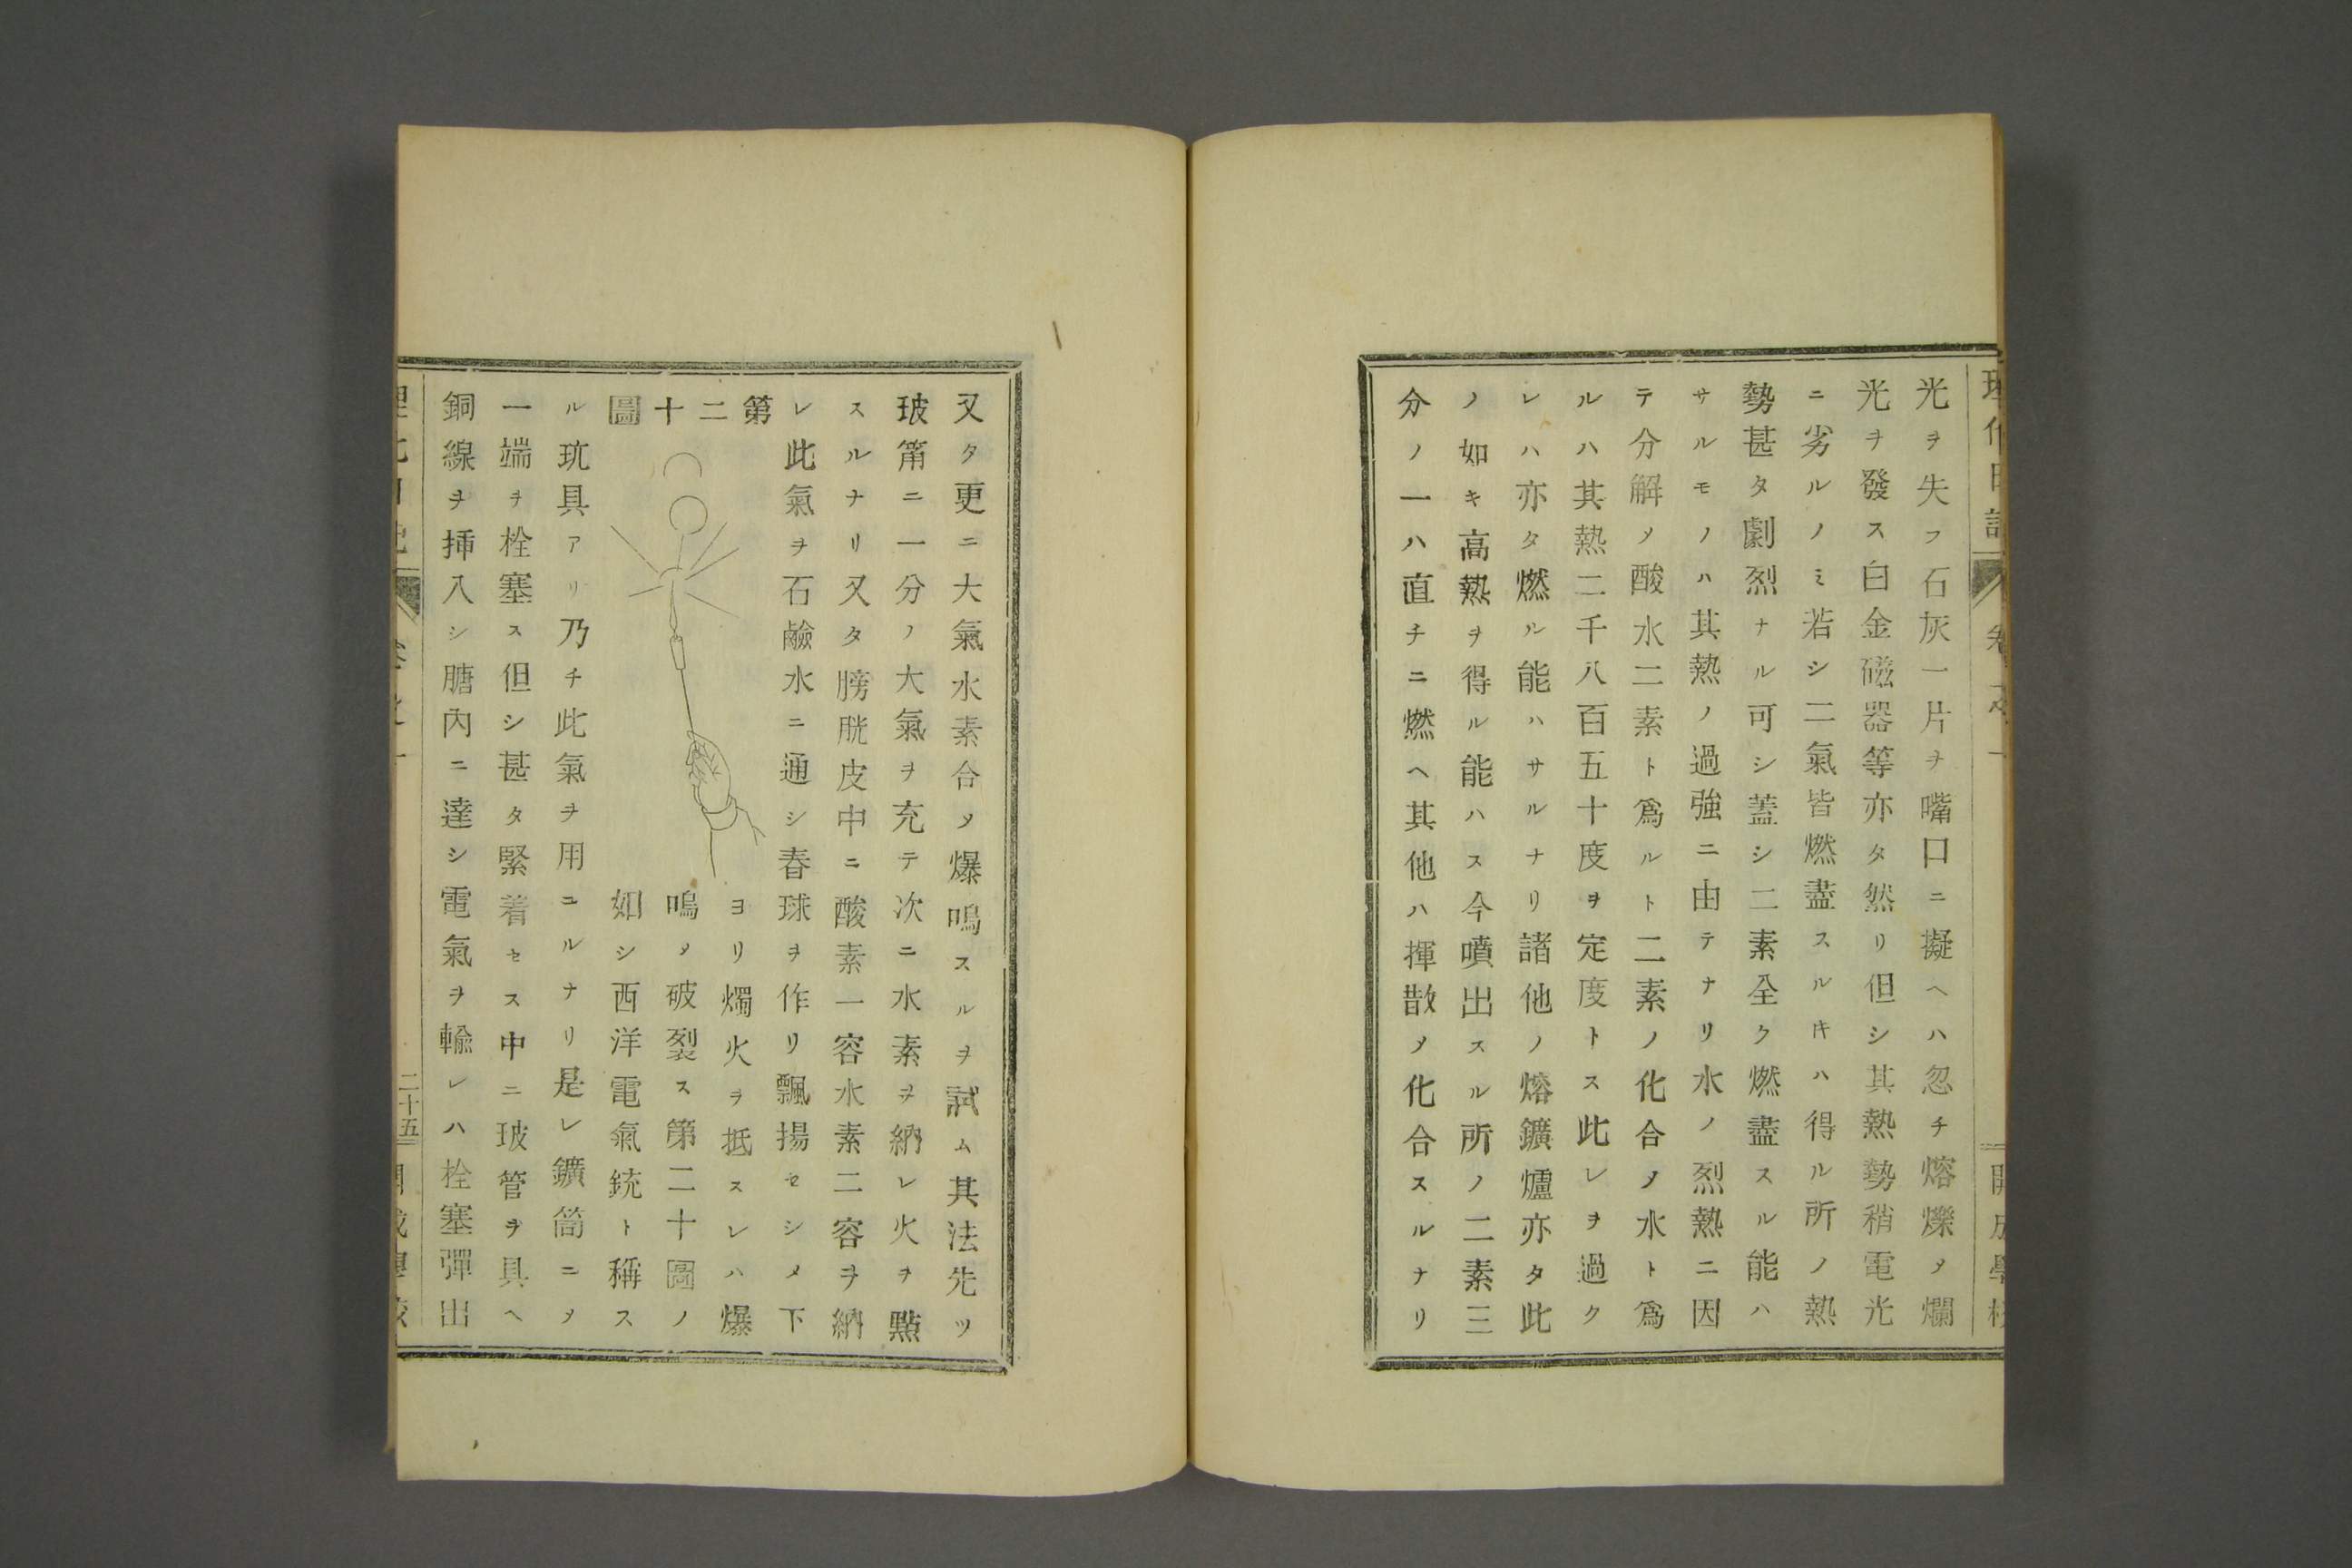 光ヲ失フ石灰一片ヲ嘴口ニ擬ヘハ忽チ熔爍メ爛
光ヲ發ス白金磁器等亦タ然リ但シ其熱勢稍電光
ニ劣ルノミ若シ二氣皆燃盡スルキハ得ル所ノ熱
勢甚タ劇烈ナル可シ蓋シ二素全ク燃盡スル能ハ
サルモノハ其熱ノ過強ニ由テナリ水ノ烈熱ニ因
テ分解メ酸水二素ト爲ルト二素ノ化合メ水ト爲
ルハ其熱二千八百五十度ヲ定度トス此レヲ過ク
レハ亦タ燃ル能ハサルナリ諸他ノ熔鑛爐亦タ此
ノ如キ高熱ヲ得ル能ハス今噴出スル所ノ二素三
分ノ一ハ直チニ燃ヘ其他ハ揮散メ化合スルナリ
又タ更ニ大氣水素合メ爆鳴スルヲ試ム其法先ツ
玻筩ニ一分ノ大氣ヲ充テ次ニ水素ヲ納レ火ヲ點
スルナリ又タ膀胱皮中ニ酸素一容水素二容ヲ納
レ此氣ヲ石鹼水ニ通シ舂球ヲ作リ飄揚セシメ下
第二十圖
ヨリ燭火ヲ抵スレハ爆
鳴メ破裂ス第二十圖ノ
如シ西洋電氣銃ト稱ス
ル玩具アリ乃チ此氣ヲ用ユルナリ是レ鑛筒ニメ
一端ヲ栓塞ス但シ甚タ緊着セス中ニ玻管ヲ具ヘ
銅線ヲ挿入シ膅內ニ達シ電氣ヲ輸レハ栓塞彈出
二十五